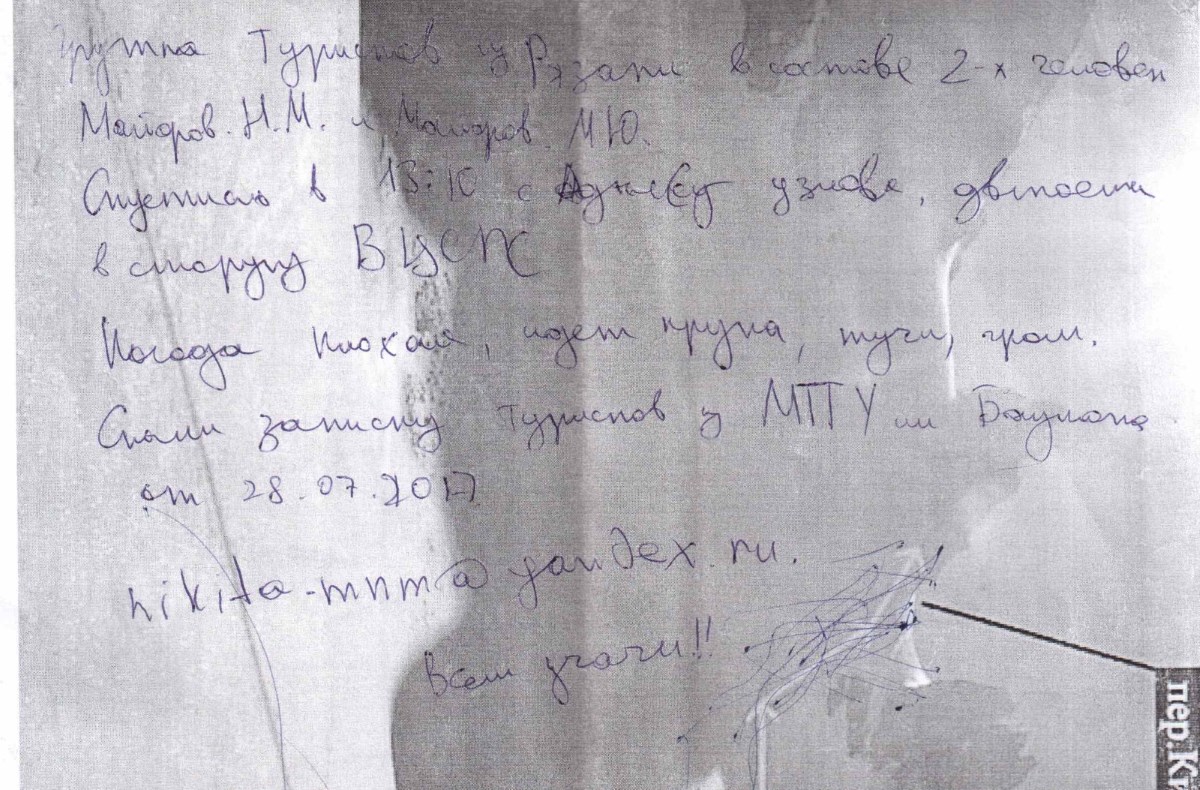 Группа туристов из Рязани в составе 2-х человек
Майоров. Н.М. и Майоров М.Ю.
Спустились в 13:10 с , двигаемся
в сторону ВЦСПС
Погода плохая, идет крупа, тучи, гром.
Сняли записку туристов из МГТУ им Баумана
от 28.07.2017
nikita-mnm@yandex.ru.
Всем удачи!!
пер.Кт